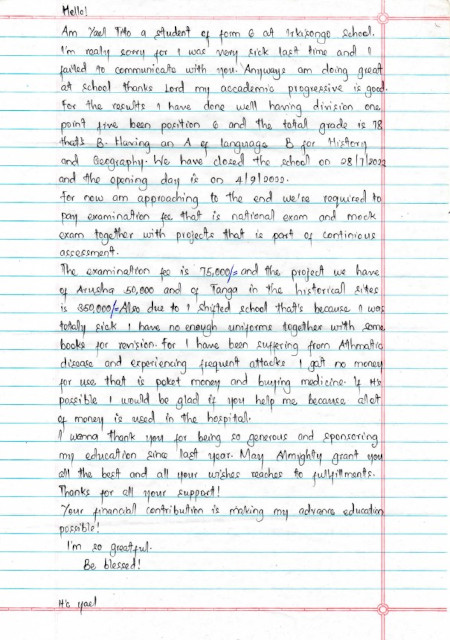 Hello!
Am Yael Tito a student of form 6 at Irkisongo school.
I'm realy sorry for I was very sick last time and I
failed to communicate with you. Anyways am doing great
at school thanks Lord my accademic progressive is good.
For the results I have done well having division one
point five been position 6 and the total grade is 78
that's B. Having an A of language B for History
and Geography. We have closed the school on 28/7/2022
and the opening day is on 4/9/2022.
For now am approaching to the end we're required to
pay examination fee that is national exam and mock
exam together with projects that is part of continious
assessment.
The examination fee is 75,000/= and the project we have
of Arusha 50,000 and of Tanga in the historical sites
is 350,000/= Also due to I shifted school that's because I was
totaly sick I have no enough uniforms together with some
books for revision. For I have been suffering from Athmatic
disease and experiencing frequent attacks I gatt no money
for use that is poket money and buying medicine. If it's
possible I would be glad if you help me because alot
of money is used in the hospital.
I wanna thank you for being so generous and sponsoring
my education since last year. May Almyghty grant you
all the best and all your wishes reaches to fullfillments.
Thanks for all your support!
Your financial contribution is making my advance education
possible!
I'm so greatful.
Be blessed!
It's yael